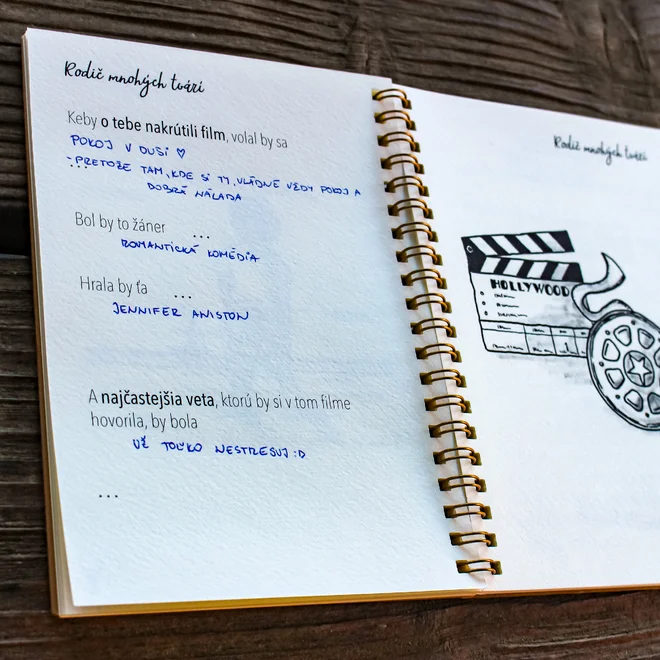 Rodič mnohých tvárí
Keby o tebe nakrútili film, volal by sa
POKOJ V DUŠI ♡
...
-PRETOŽE TAM, KDE SI TY, VLÁDNE VŽDY POKOJ A
DOBRÁ NÁLADA
Bol by to žáner ...
ROMANTICKÁ KOMÉDIA
Hrala by ťa ...
JENNIFER ANISTON
A najčastejšia veta, ktorú by si v tom filme
hovorila, by bola
UŽ TOĽKO NESTRESUJ :D
...
Rodič mnohých tvárí
HOLLYWOOD